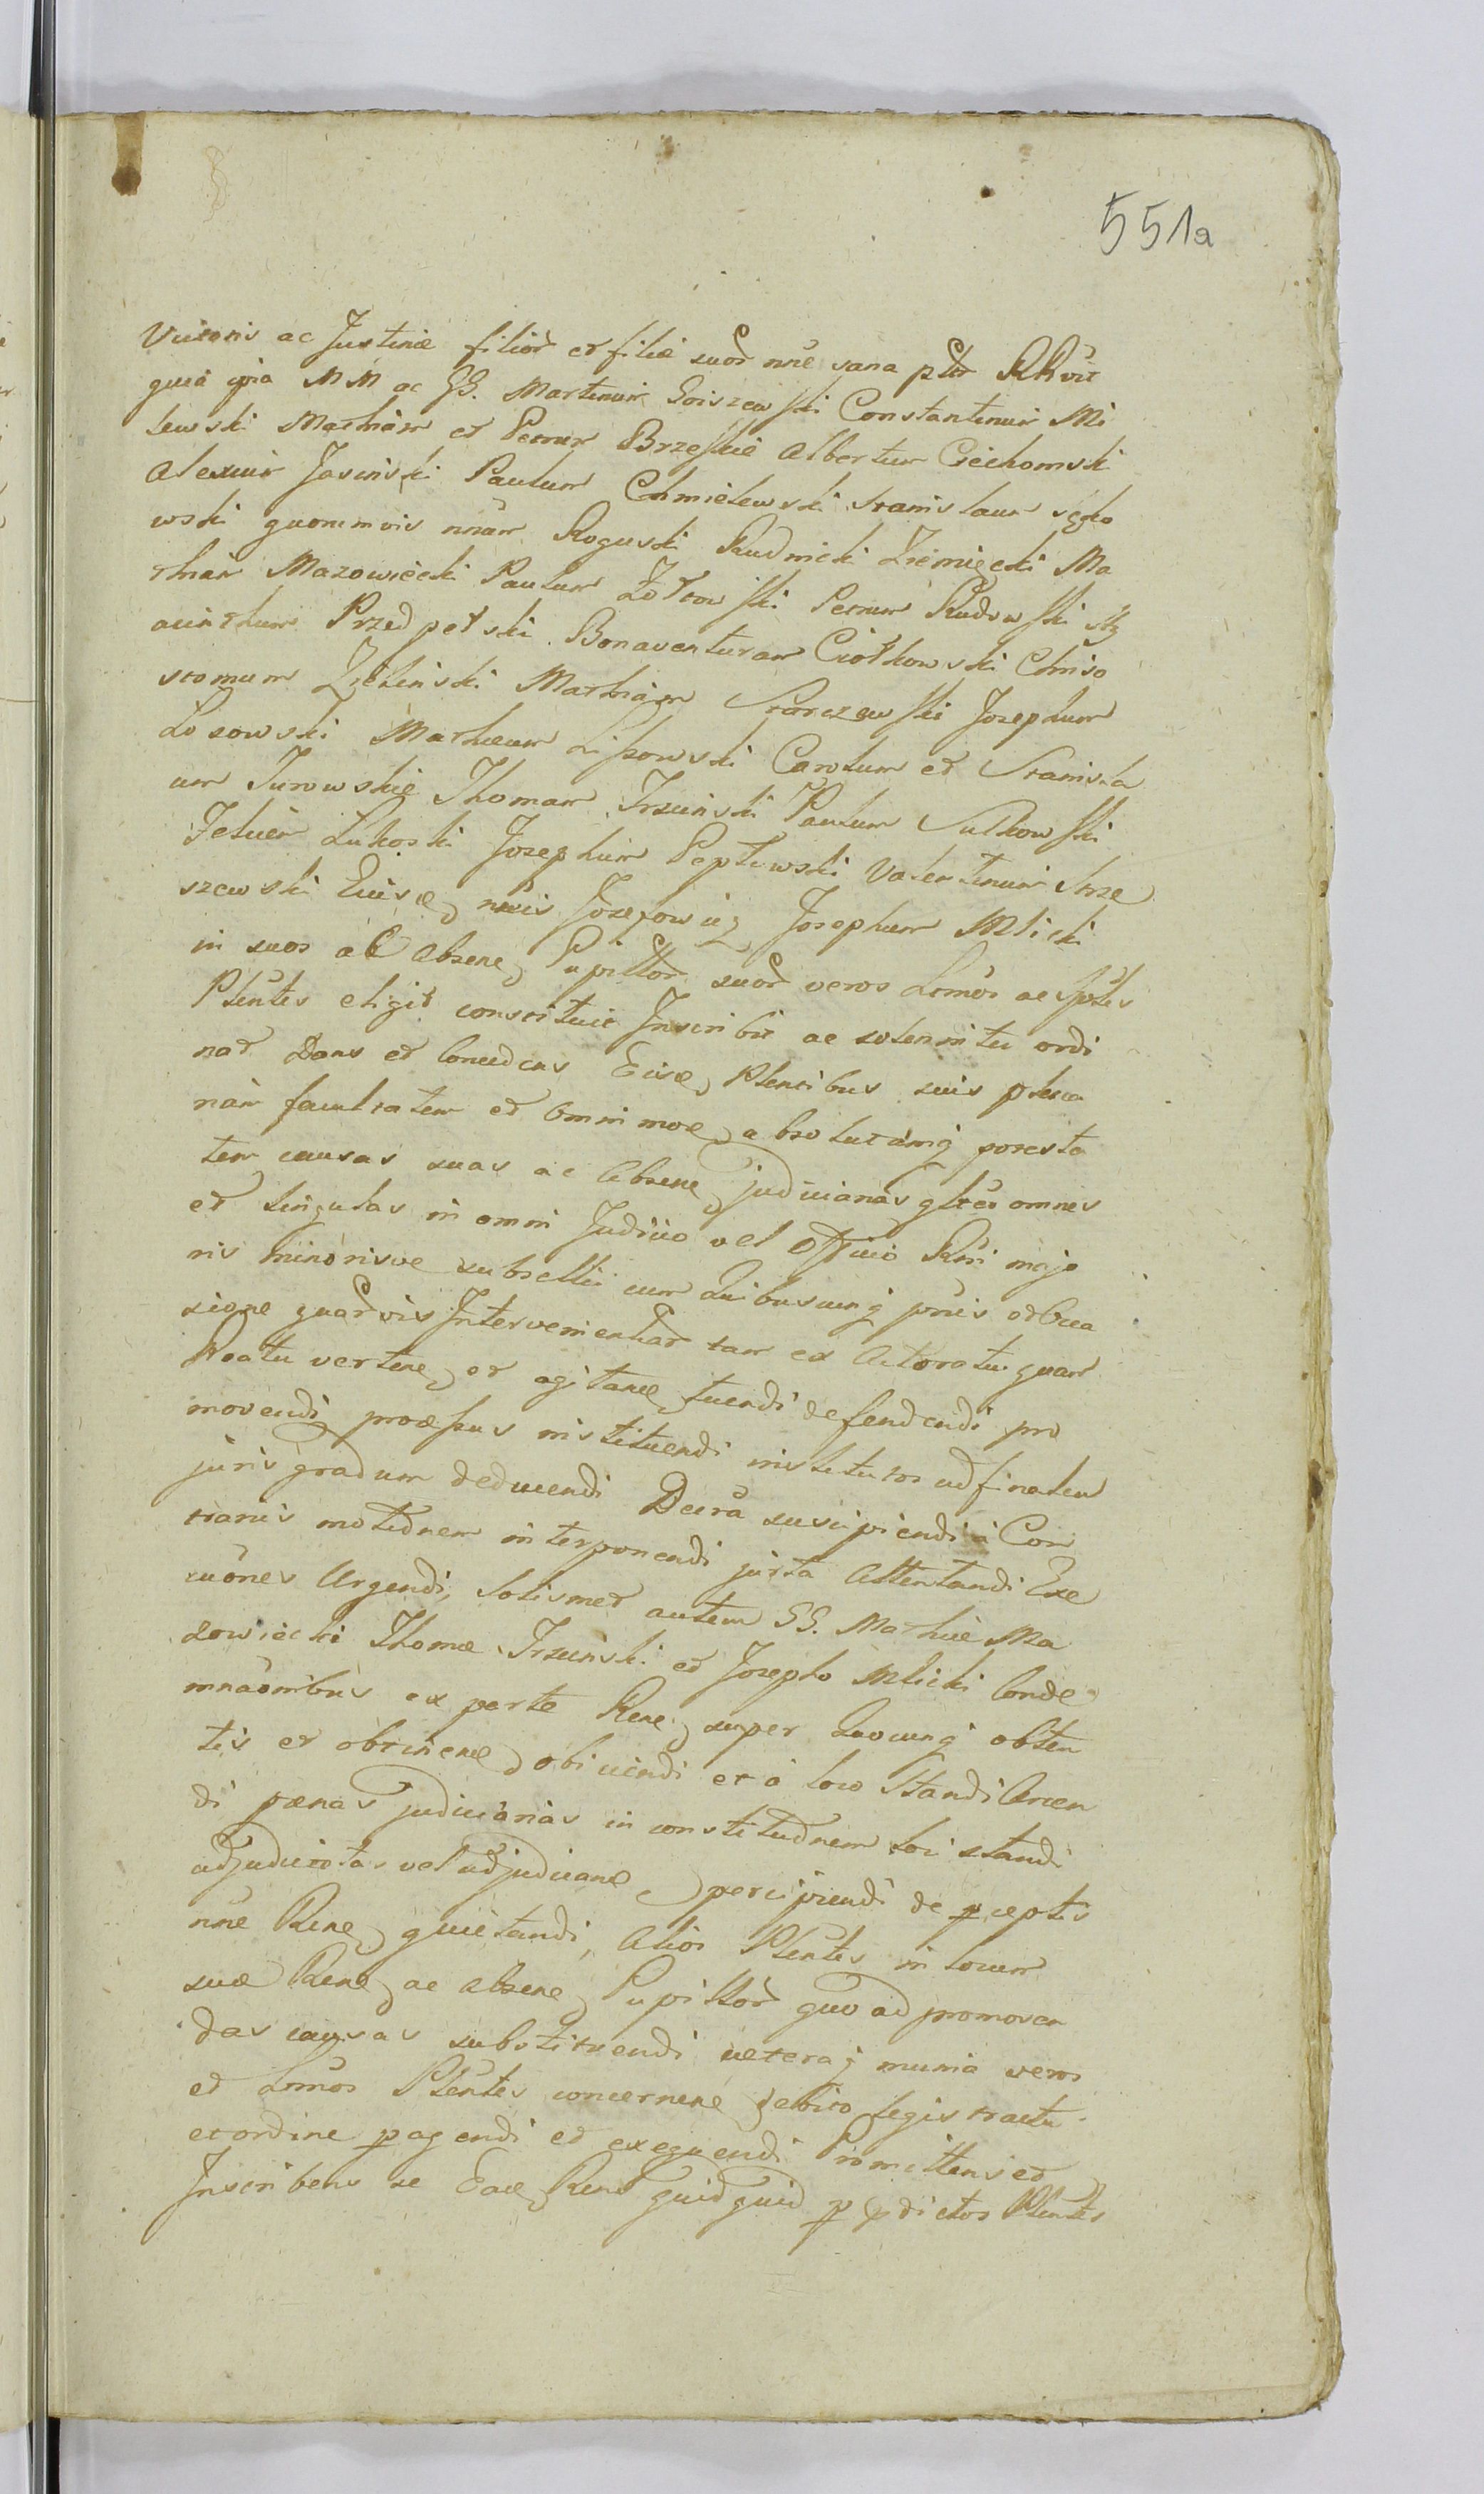 551a
Victoris ac Justinæ filior et filiæ suor nne sana pltr RRvit
quia ipia MM ac GG. Martinum Goiszewski Constantinum Mi
lewski Mathiam et Petrum Brzeskie Albertum Ciechomski
Alexium Jasiński Paulum Chmielewski Stanislaum
wski quorumvis nnar Roguski Rudnicki Ziemięcki Ma
thiam Mazowiecki Paulum Żołtowski Petrum Rudowski Hy
acinthum Przedpełski Bonaventuram Ciołkowski Chriso
stomum Zieliński Mathiam Starczewski Josephum
Losowski Mathæum Lissowski Carolum et Stanisla
um Turowskie Thomam Trzciński Paulum Sulkowski
Felicem Lukoski Josephum Peplowski Valentinum Strze
szewski Eius nnis Jozefowicz Josephum Mlicki
in suos ac absene Pupillor suor veros Lttmos ac Spltes
Plentes eligit constituit Inscribit ac solemniter ordi
nat Dans et Concedens Eisdem Plentibus suis plena
riam facultatem et omnimodam absolutamq potesta
tem causas suas ac Absene judiciarias gltes omnes
et singulas in omni Judicio vel Officio Rni majo
ris minorisve subsellii cum Quibuscunq prnis occa
sione quarvis Intervenientiar tam ex Actoratu quam
Reatu vertene et agitane tuendi defendendi pro
movendi processus instituendi institutos ad finalem
juris gradum deducendi Decrâ suscipiendi à Con
trariis motionem interponendi juxta Attentandi Exe
cuones Urgendi, Solismet autem GG. Mathiæ Ma
zowiecki Thomæ Trzciński et Josepho Mlicki Conde
mnaonibus ex parte Rene super Quocunq obten
tis et obtinene obiiciendi et à loco Standi Arcen
di pænas judiciarias in constitutionem loci standi
adjudicatas vel adjudicane percipiendi de pceptis
nne Rene quietandi, Alios Plentes in locum
suæ Rene ac absene Pupillor quo ad promoven
das causas substituendi ceteraq munia veros
et Lttmos Plentes concernene debito legis tractu
et ordine pagendi et exequendi Promittens et
Inscribens se Eadem Rene quidquid p pdictos Plentes